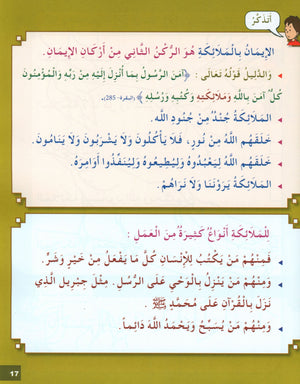 أَتَذَكَّرُ
الإِيمَانُ بِالْمَلَائِكَةِ هُوَ الرُّكْنُ الثَّانِي مِنْ أَرْكَانِ الإِيمَانِ.
وَالدَّلِيلُ قَوْلُهُ تَعَالَى : ﴿آمَنَ الرَّسُولُ بِمَا أُنْزِلَ إِلَيْهِ مِنْ رَبِّهِ وَالْمُؤْمِنُونَ
كُلٌّ آمَنَ بِاللَّهِ وَمَلَائِكَتِهِ وَكُتُبِهِ وَرُسُلِهِ﴾ (البقرة- 285).
المَلَائِكَةُ جُنْدٌ مِنْ جُنُودِ اللَّهِ.
خَلَقَهُمُ اللَّهُ مِنْ نُورٍ، فَلَا يَأْكُلُونَ وَلَا يَشْرَبُونَ وَلَا يَنَامُونَ.
خَلَقَهُمُ اللَّهُ لِيَعْبُدُوهُ وَلِيُطِيعُوهُ وَلِيُنَفِّذُوا أَوَامِرَهُ.
المَلَائِكَةُ يَرَوْنَنَا وَلَا نَرَاهُمْ.
لِلْمَلَائِكَةِ أَنْوَاعٌ كَثِيرَةٌ مِنَ الْعَمَلِ :
فَمِنْهُمْ مَنْ يَكْتُبُ لِلْإِنْسَانِ كُلَّ مَا يَفْعَلُ مِنْ خَيْرٍ وَشَرٍّ.
وَمِنْهُمْ مَنْ يَنْزِلُ بِالْوَحْيِ عَلَى الرُّسُلِ. مِثْلَ جِبْرِيلَ الَّذِي
نَزَلَ بِالْقُرْآنِ عَلَى مُحَمَّدٍ ﷺ.
وَمِنْهُمْ مَنْ يُسَبِّحُ وَيَحْمَدُ اللَّهَ دَائِماً.
17